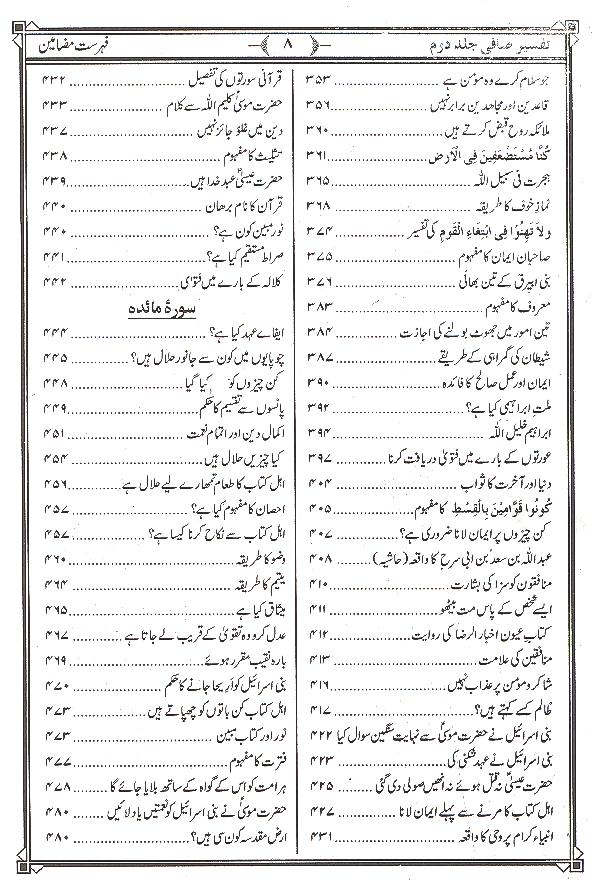 تفسیر صافی جلد دوم
۸
فہرست مضامین
جو سلام کرے وہ مومن ہے ۳۵۳
قاعدین اور مجاہدین برابر نہیں ۳۵۶
ملائکہ روح قبض کرتے ہیں ۳۶۰
كُنَّا مُسْتَضْعَفِينَ فِي الْاَرْضِ ۳۶۱
ہجرت فی سبیل اللہ ۳۶۵
نماز خوف کا طریقہ ۳۶۸
وَلَا تَهِنُوْا فِي ابْتِغَاءِ الْقَوْمِ کی تفسیر ۳۷۴
صاحبان ایمان کا مفہوم ۳۷۵
بنی ابیرق کے تین بھائی ۳۷۶
معروف کا مفہوم ۳۸۳
تین امور میں جھوٹ بولنے کی اجازت ۳۸۴
شیطان کی گمراہی کے طریقے ۳۸۷
ایمان اور عمل صالح کا فائدہ ۳۹۰
ملتِ ابراہیمی کیا ہے؟ ۳۹۲
ابراہیم خلیل اللہ ۳۹۴
عورتوں کے بارے میں فتویٰ دریافت کرنا ۳۹۷
دنیا اور آخرت کا ثواب ۴۰۴
كُونُوا قَوَّامِينَ بِالْقِسْطِ کا مفہوم ۴۰۵
کن چیزوں پر ایمان لانا ضروری ہے؟ ۴۰۷
عبد اللہ بن سعد بن ابی سرح کا واقعہ (حاشیہ) ۴۰۸
منافقون کو سزا کی بشارت ۴۱۰
ایسے شخص کے پاس مت بیٹھو ۴۱۱
کتاب عیون اخبار الرضا کی روایت ۴۱۲
منافقین کی علامت ۴۱۳
شاکر و مومن پر عذاب نہیں ۴۱۶
ظالم کسے کہتے ہیں؟ ۴۱۷
بنی اسرائیل نے حضرت موسیٰؑ سے نہایت سنگین سوال کیا ۴۲۲
بنی اسرائیل نے عہد شکنی کی ۴۲۳
حضرت عیسیٰؑ نہ قتل ہوئے نہ انھیں صولی دی گئی ۴۲۵
اہل کتاب کا مرنے سے پہلے ایمان لانا ۴۲۷
انبیاء کرام پر وحی کا واقعہ ۴۳۱
قرآنی سورتوں کی تفصیل ۴۳۲
حضرت موسیٰؑ کلیم اللہ سے کلام ۴۳۳
دین میں غلو جائز نہیں ۴۳۷
تثلیث کا مفہوم ۴۳۸
حضرت عیسیٰؑ عبد خدا ہیں ۴۳۹
قرآن کا نام برھان ۴۴۰
نور مبین کون ہے؟ ۴۴۰
صراط مستقیم کیا ہے؟ ۴۴۱
کلالہ کے بارے میں فتوای ۴۴۲
سورۂ مائدہ
ایفائے عہد کیا ہے؟ ۴۴۴
چوپایوں میں کون سے جانور حلال ہیں؟ ۴۴۵
کن چیزوں کو کیا گیا ۴۴۸
پانسوں سے تقسیم کا حکم ۴۴۹
اکمال دین اور اتمام نعمت ۴۵۱
کیا چیزیں حلال ہیں ۴۵۴
اہل کتاب کا طعام تمھارے لیے حلال ہے ۴۵۶
احصان کا مفہوم کیا ہے؟ ۴۵۷
اہل کتاب سے نکاح کرنا کیسا ہے؟ ۴۵۷
وضو کا طریقہ ۴۶۰
تیمم کا طریقہ ۴۶۴
میثاق کیا ہے ۴۶۵
عدل کرو وہ تقویٰ کے قریب لے جاتا ہے ۴۶۷
بارہ نقیب مقرر ہوئے ۴۶۹
بنی اسرائیل کو اریحا جانے کا حکم ۴۷۰
اہل کتاب کن باتوں کو چھپاتے ہیں ۴۷۳
نور اور کتاب مبین ۴۷۳
فترت کا مفہوم ۴۷۷
ہر امت کو اس کے گواہ کے ساتھ بلایا جائے گا ۴۷۸
حضرت موسیٰؑ نے بنی اسرائیل کو نعمتیں یاد لائیں ۴۸۰
ارض مقدسہ کون سی ہیں؟ ۴۸۰